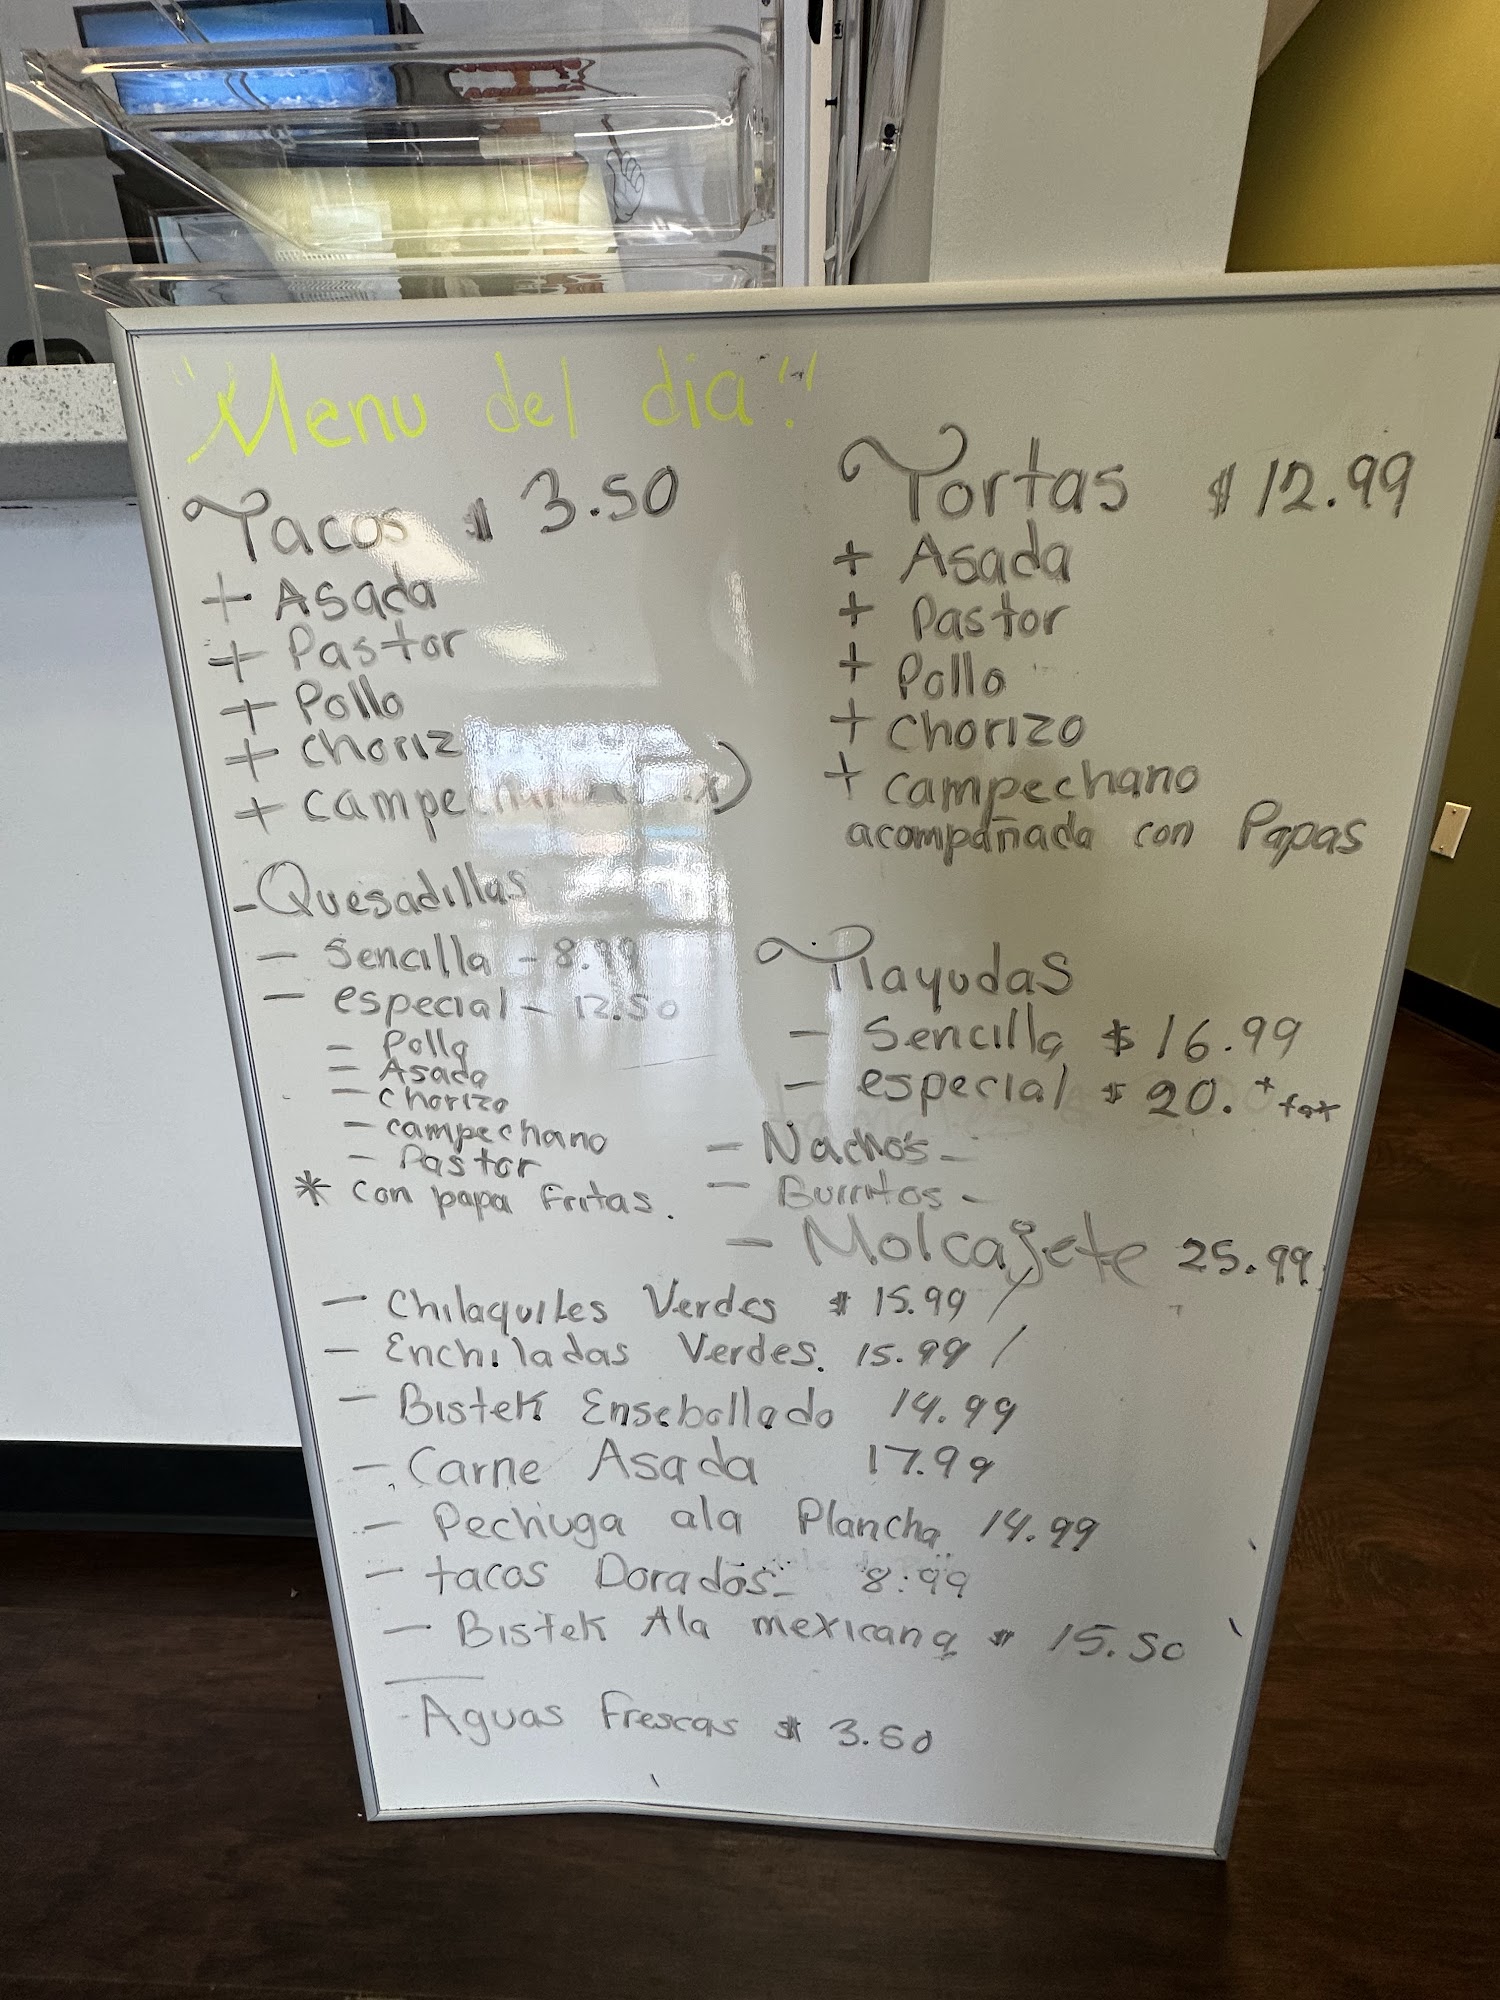 "Menu del dia"!
Tacos $ 3.50
+ Asada
+ Pastor
+ Pollo
+ Choriz
+ Campechano
- Quesadillas
- Sencilla - 8.99
- especial - 12.50
- Pollo
- Asada
- Chorizo
- campechano
- Pastor
* Con papa Fritas.
Tortas $ 12.99
+ Asada
+ Pastor
+ Pollo
+ Chorizo
+ Campechano
acompañada con Papas
Tlayudas
- Sencilla $ 16.99
- especial $ 20. + tax
- Nachos -
- Burritos -
- Molcajete 25.99
- Chilaquiles Verdes $ 15.99 /
- Enchiladas Verdes. 15.99 /
- Bistek Ensebollado 14.99
- Carne Asada 17.99
- Pechuga ala Plancha 14.99
- tacos Dorados - 8.99
- Bistek Ala mexicana $ 15.50
- Aguas Frescas $ 3.50